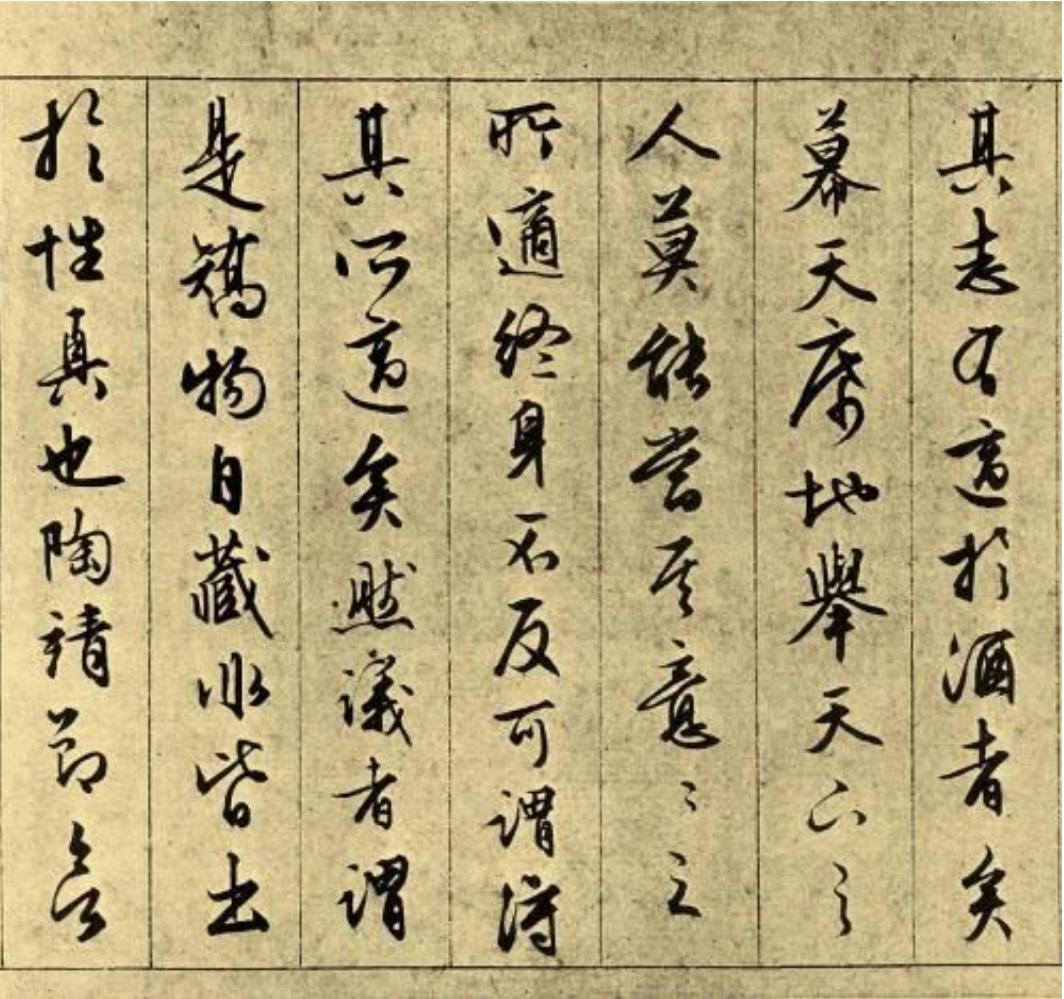 其志有適於酒者矣
幕天席地舉天下之
人莫能當其意〻之
所適終身不反可謂得
其所適矣然議者謂
是矯物自藏此皆出
於性真也陶靖節